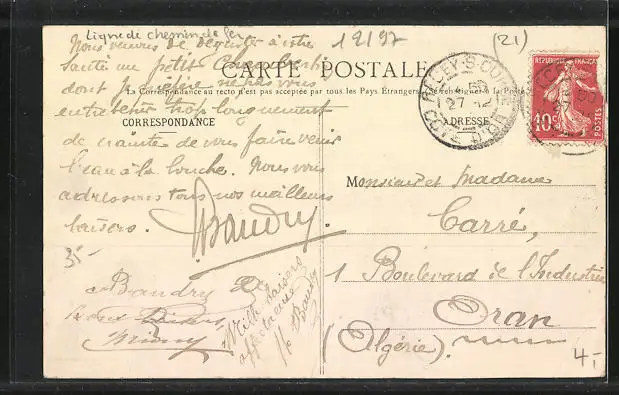 Ligne de chemin de fer
12197
(21)
Nous venons de déguster à votre
santé un petit Chambertin
CARTE POSTALE
dont je
La Correspondance au recto n'est pas acceptée par tous les Pays Étrangers
entretenir trop longuement
CORRESPONDANCE
ADRESSE
de crainte de vous faire venir
l'eau à la bouche. Nous vous
adressons tous nos meilleurs
baisers. Baudry.
35-
Baudry
Mille baisers
affectueux
Baudry
Monsieur et Madame
Carré,
1 Boulevard de l'Industrie
Oran
(Algérie).
4,-
CÔTE D'OR
27
RÉPUBLIQUE FRANÇAISE
10c
POSTES